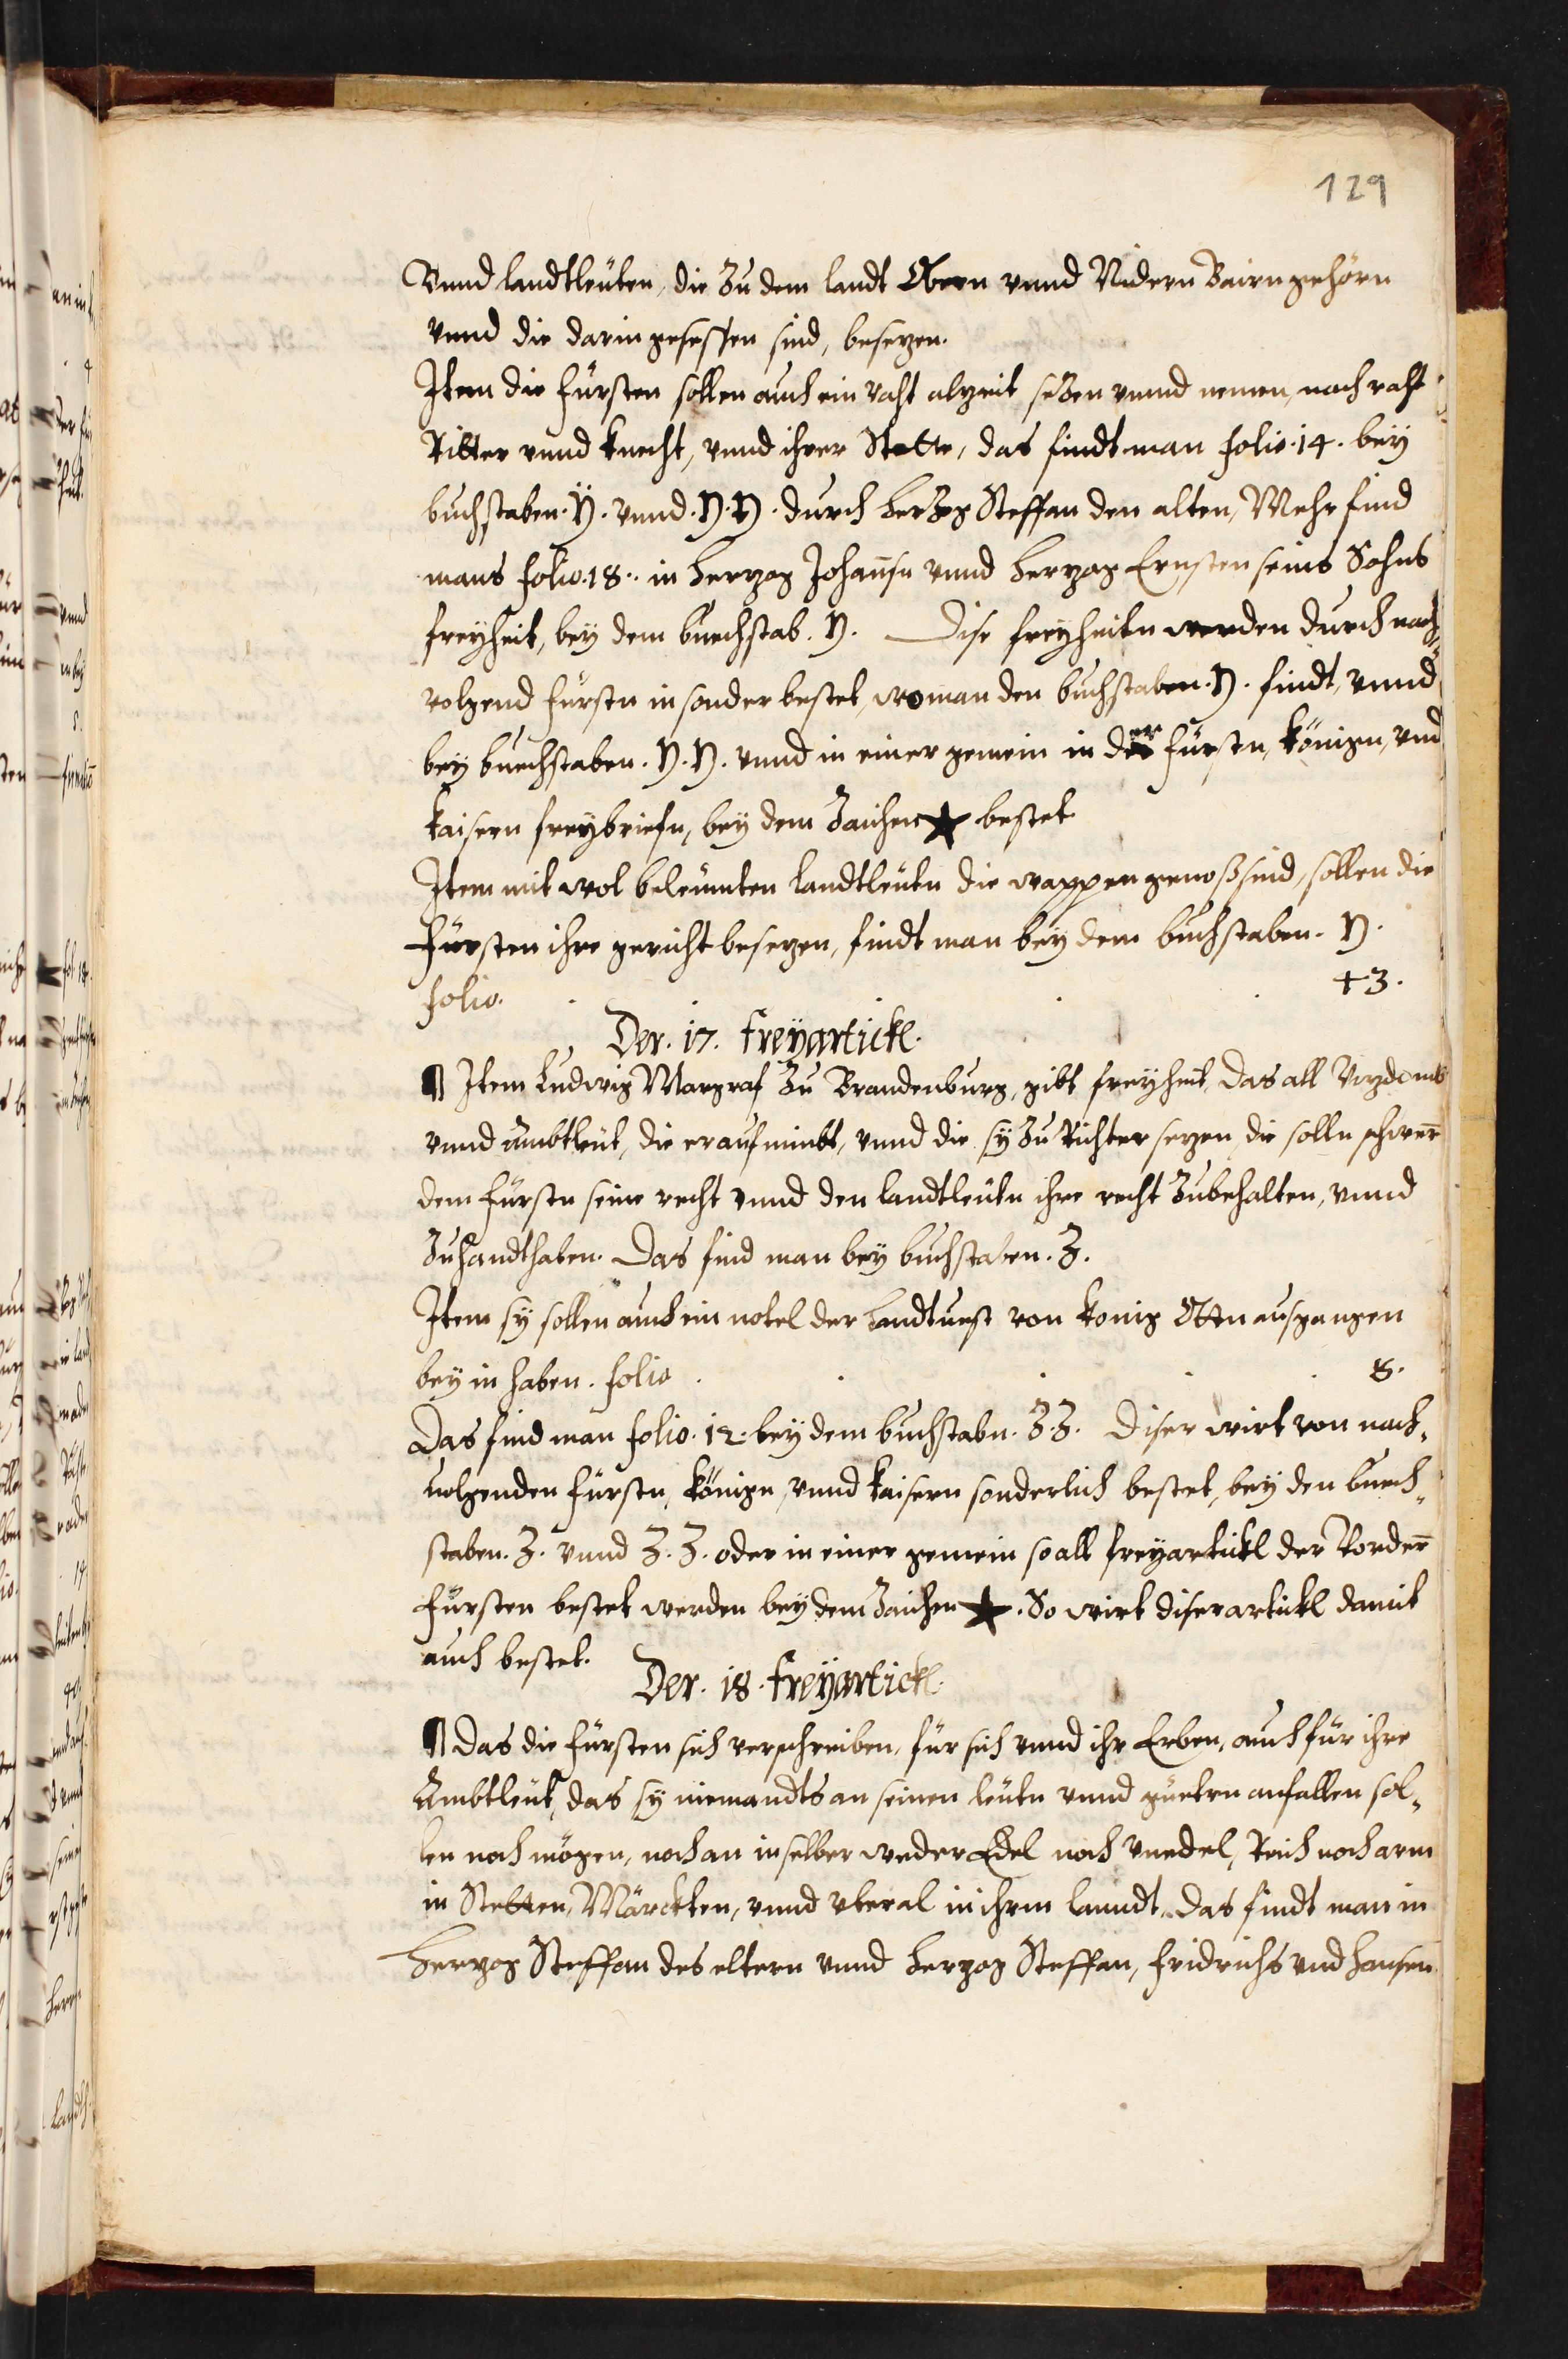 129
Vnnd landtleüten, die Zu dem landt Obern vnnd Nidern Bairn gehörn
vnnd die darin gesessen sind, besezen.
Item die fürsten sollen auch ein raht alzeit seZen vnnd nemen, nach raht
Ritter vnnd knecht, vnnd ihrer Stette, das findt man folio. 14. bey
buchstaben. Y. vnnd. Y. Y. durch herZog Steffan den alten, Mehr find
mans folio. 18. in herzog Johannsn vnnd herzog Ernsten seins Sohns
freyheit, bey dem buechstab. Y. Dise freyheitn werden durch nach-
volgend fürstn in sonder bestet, wo man den buchstaben. Y. findt, vnnd
bey buechstaben. Y. Y. vnnd in einer gemein in der fürstn, königen, vnd
kaisern freybriefn, bey dem Zaichen ★ bestet
Item mit wol beleümten landtleütn die wappengenoß sind, sollen die
fürsten ihre gericht besezen, findt man bey dem buchstaben. Y.
folio. . . . +3.
Der. 17. freyartickl.
¶ Item Ludwig Margraf Zu Brandenburg, gibt freyheit, das all Vizdomb
vnnd Ambtleüt, die er aufnimbt, vnnd die sy Zu Richter sezen, die solln schwern̄
dem fürstn seine recht vnnd den landtleütn ihre recht Zubehalten, vnnd
Zuhandthaben. Das find man bey buchstaben. Z.
Item sy sollen auch ein notel der handtuest von konig Ottn ausgangen
bey in haben. folio . . . . 8.
Das find man folio. 12. bey dem buchstabn. Z. Z. Diser wirt von nach-
uolgenden fürstn, könign, vnnd kaisern sonderlich bestet, bey den buech-
staben. Z. vnnd Z. Z. oder in einer gemein so all freyartickl der Vordern̄
fürsten bestet werden bey dem Zaichen ★. So wirt diser artickl damit
auch bestet.
Der. 18. freyartickl.
¶ Das die fürsten sich verschreiben, für sich vnnd ihr Erben, auch für ihre
Ambtleüt, das sy niemandts an seinen leütn vnnd güetern anfallen sol-
len noch mögen, noch an in selber weder Edel noch vnedel, Reich noch arm
in Stetten, Märckten, vnnd vberal in ihrm lanndt, das findt man in
herzog Steffan des eltern vnnd herzog Steffan, fridrichs vnd hansen